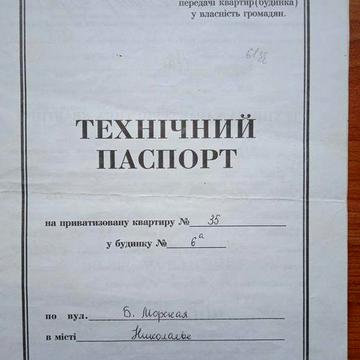 передачі квартир(будинка)
у власність громадян.
ТЕХНІЧНИЙ
ПАСПОРТ
на приватизовану квартиру № 35
у будинку № 6а
по вул. Б. Морская
в місті Николаеве